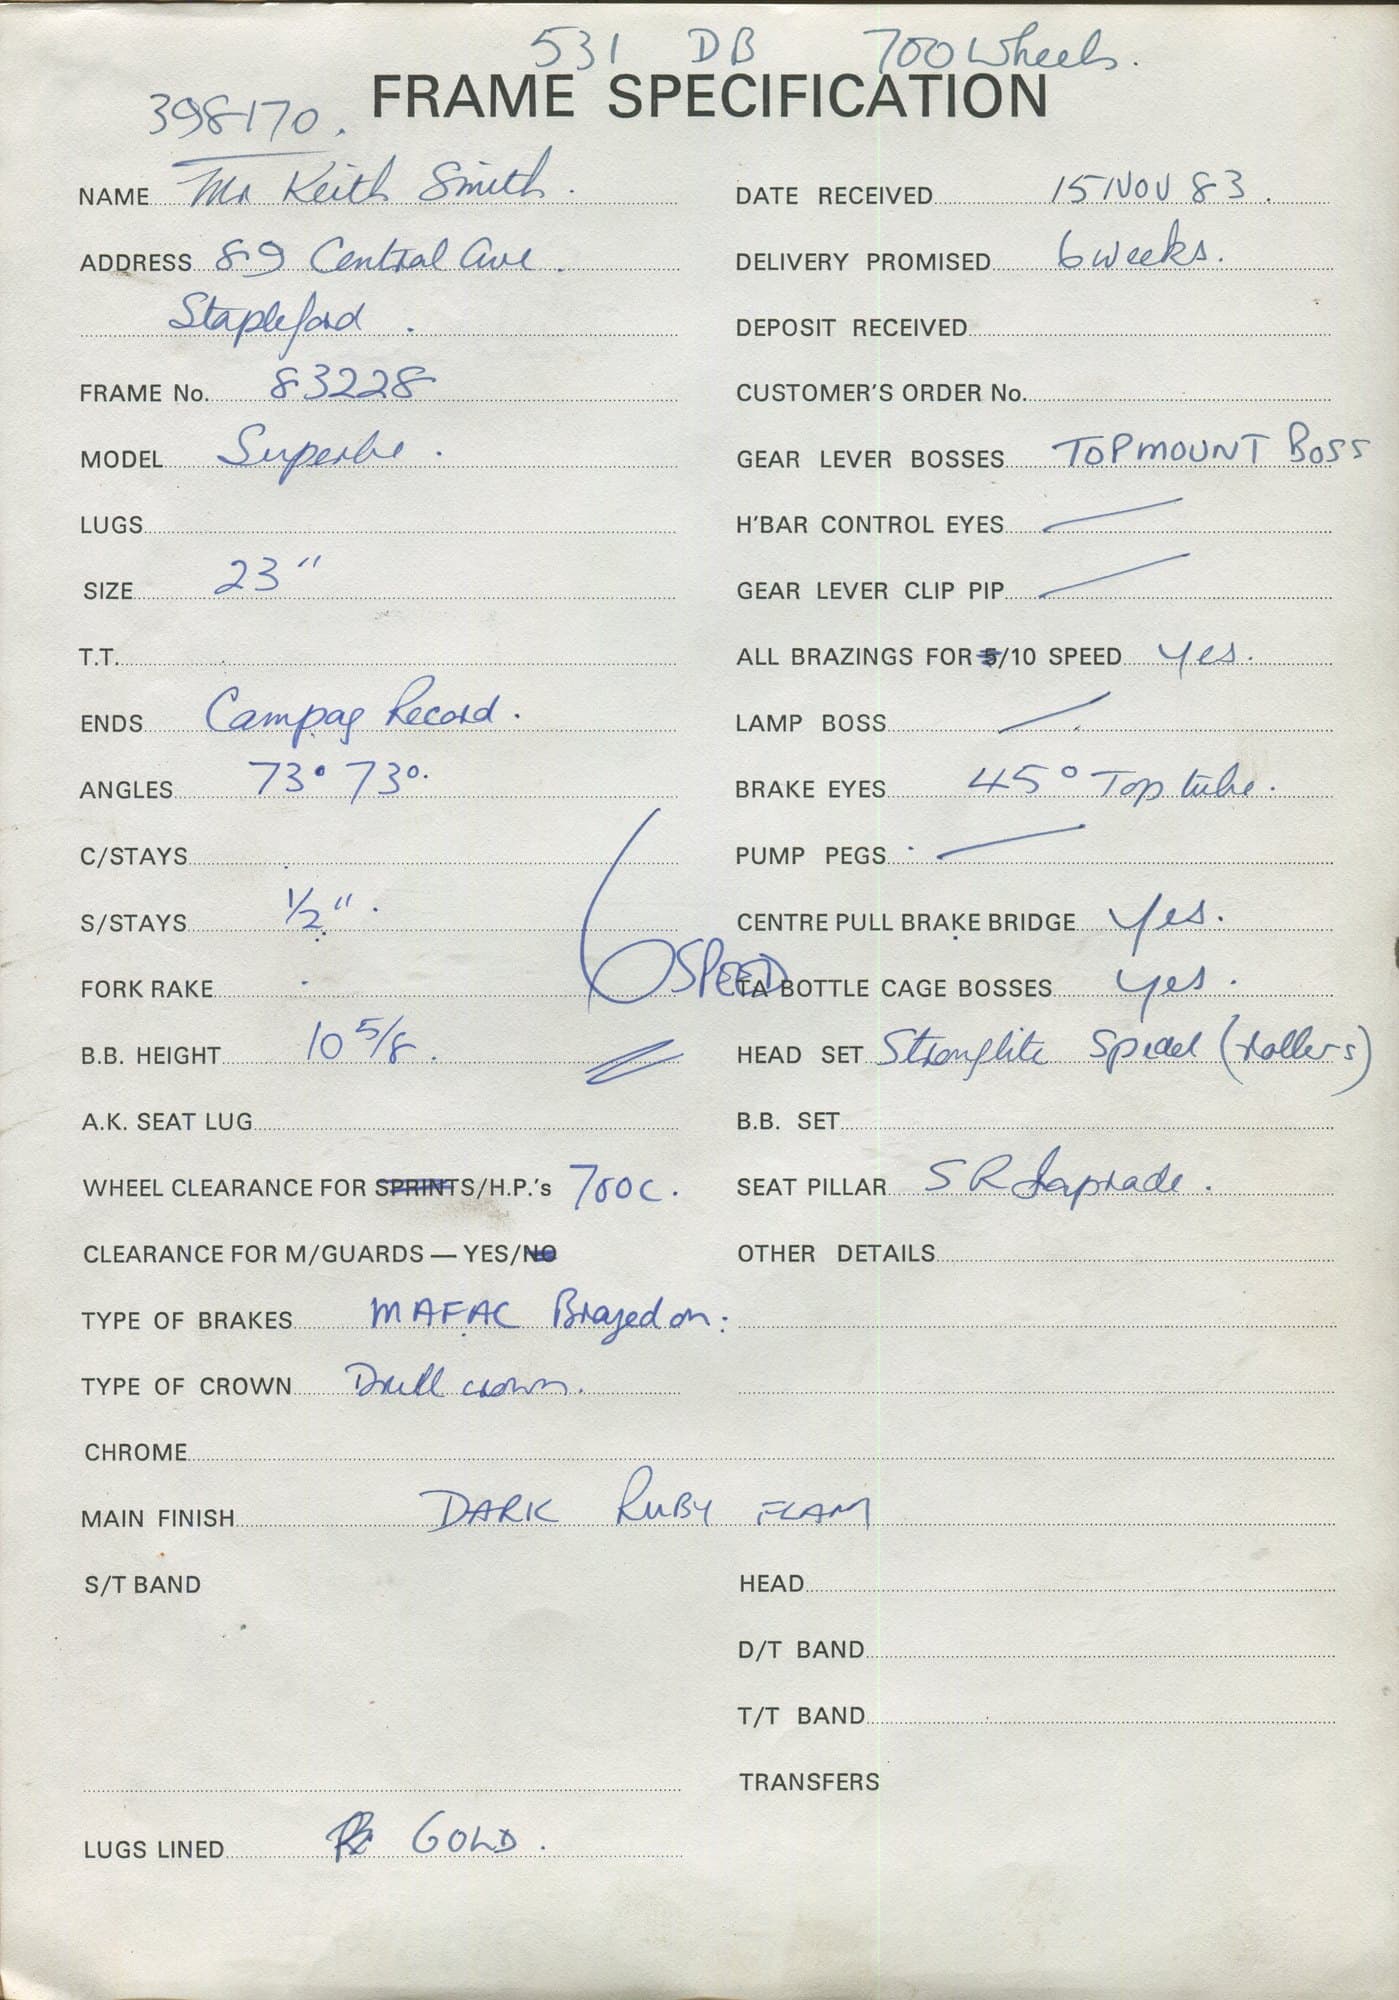 531 DB 700 Wheels.
FRAME SPECIFICATION
398170.
NAME Mr Keith Smith.
ADDRESS 89 Central Ave.
Stapleford.
FRAME No. 83228
MODEL Superbe.
LUGS
SIZE 23"
T.T.
ENDS Campag Record.
ANGLES 73° 73°.
C/STAYS
S/STAYS 1/2".
FORK RAKE
6 SPEED
B.B. HEIGHT 10 5/8.
A.K. SEAT LUG
WHEEL CLEARANCE FOR SPRINTS/H.P.'s 700c.
CLEARANCE FOR M/GUARDS — YES/NO
TYPE OF BRAKES MAFAC Brazed on:
TYPE OF CROWN Drill crown.
CHROME
MAIN FINISH DARK RUBY FLAM
S/T BAND
LUGS LINED GOLD.
DATE RECEIVED 15 NOV 83.
DELIVERY PROMISED 6 weeks.
DEPOSIT RECEIVED
CUSTOMER'S ORDER No.
GEAR LEVER BOSSES TOPMOUNT BOSS
H'BAR CONTROL EYES
GEAR LEVER CLIP PIP
ALL BRAZINGS FOR 5/10 SPEED yes.
LAMP BOSS
BRAKE EYES 45° Top tube.
PUMP PEGS
CENTRE PULL BRAKE BRIDGE Yes.
TA BOTTLE CAGE BOSSES yes.
HEAD SET Stronglite Special (rollers)
B.B. SET
SEAT PILLAR SR Laprade.
OTHER DETAILS
HEAD
D/T BAND
T/T BAND
TRANSFERS